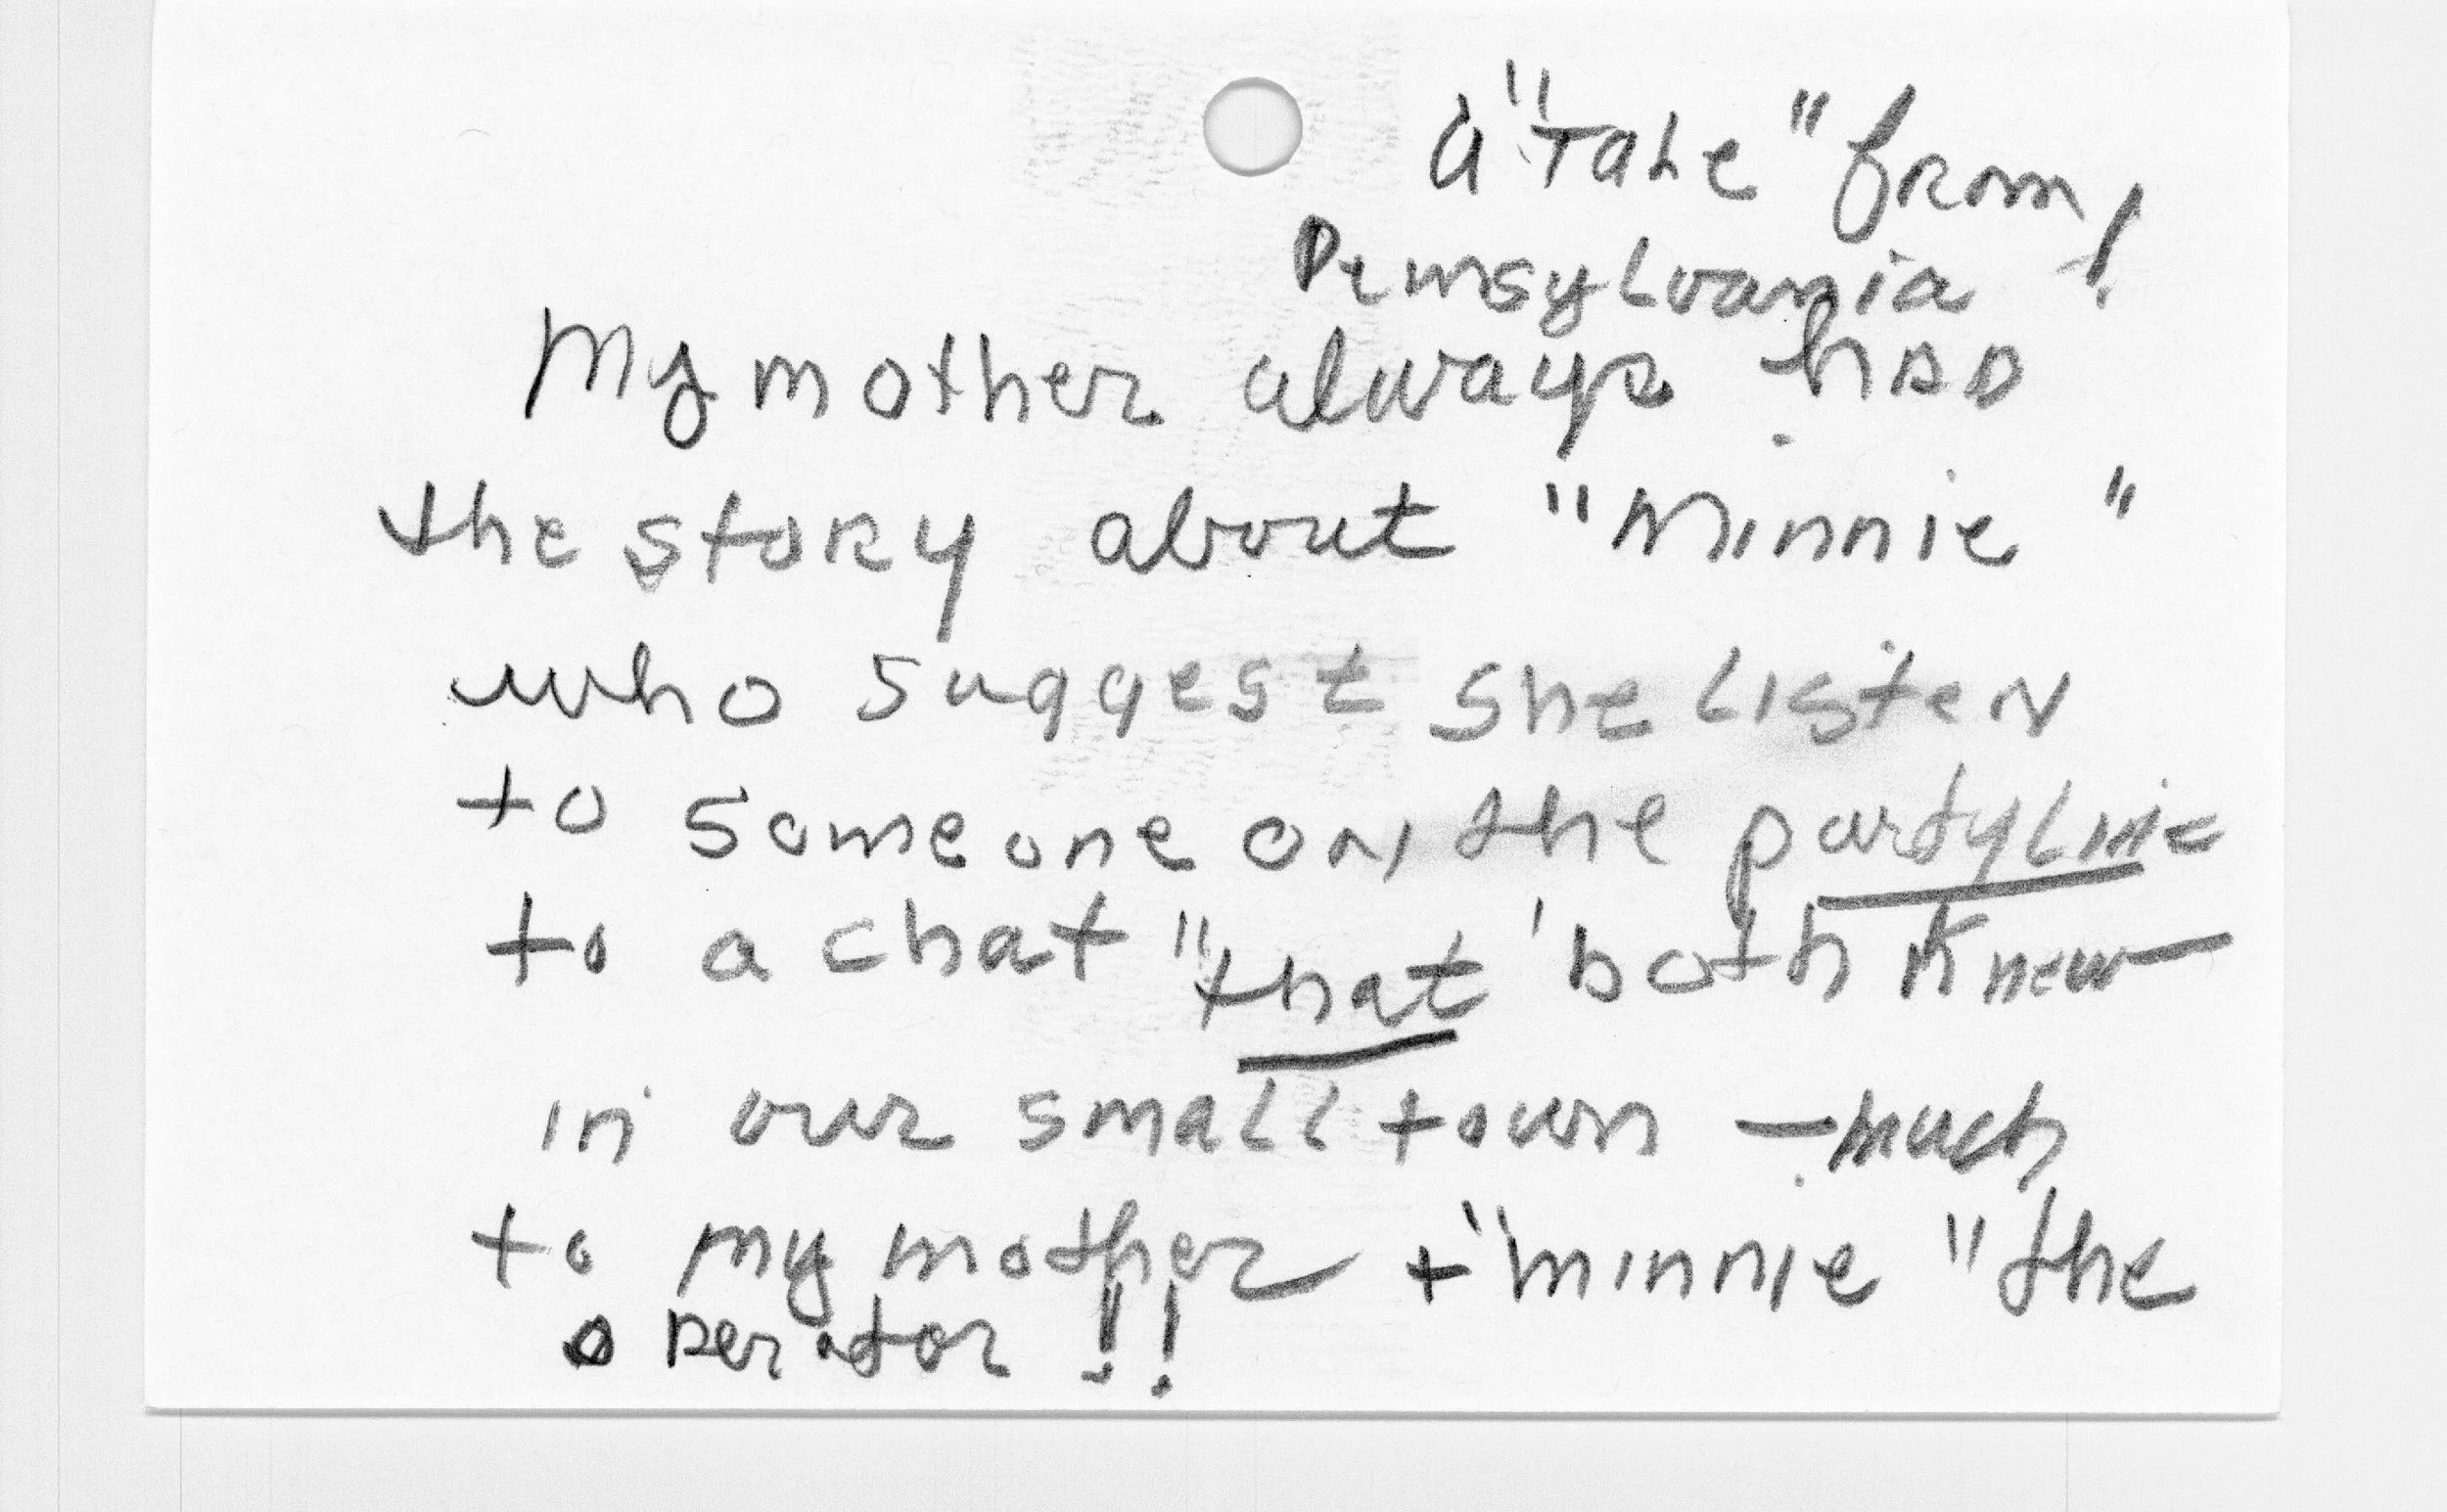 a "Tale" from
Pennsylvania !
My mother always had
the story about "Minnie"
who suggest she listen
to someone on the partyline
to a chat "that' both knew—
in our small town — much
to my mother + "minnie" the
operator !!